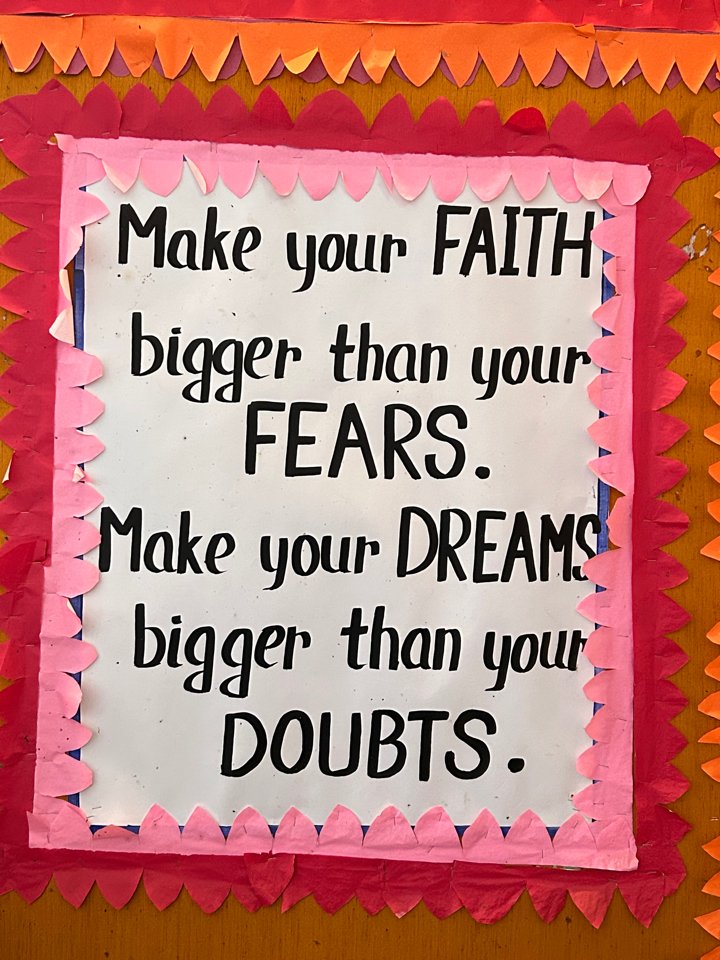 Make your FAITH
bigger than your
FEARS.
Make your DREAMS
bigger than your
DOUBTS.